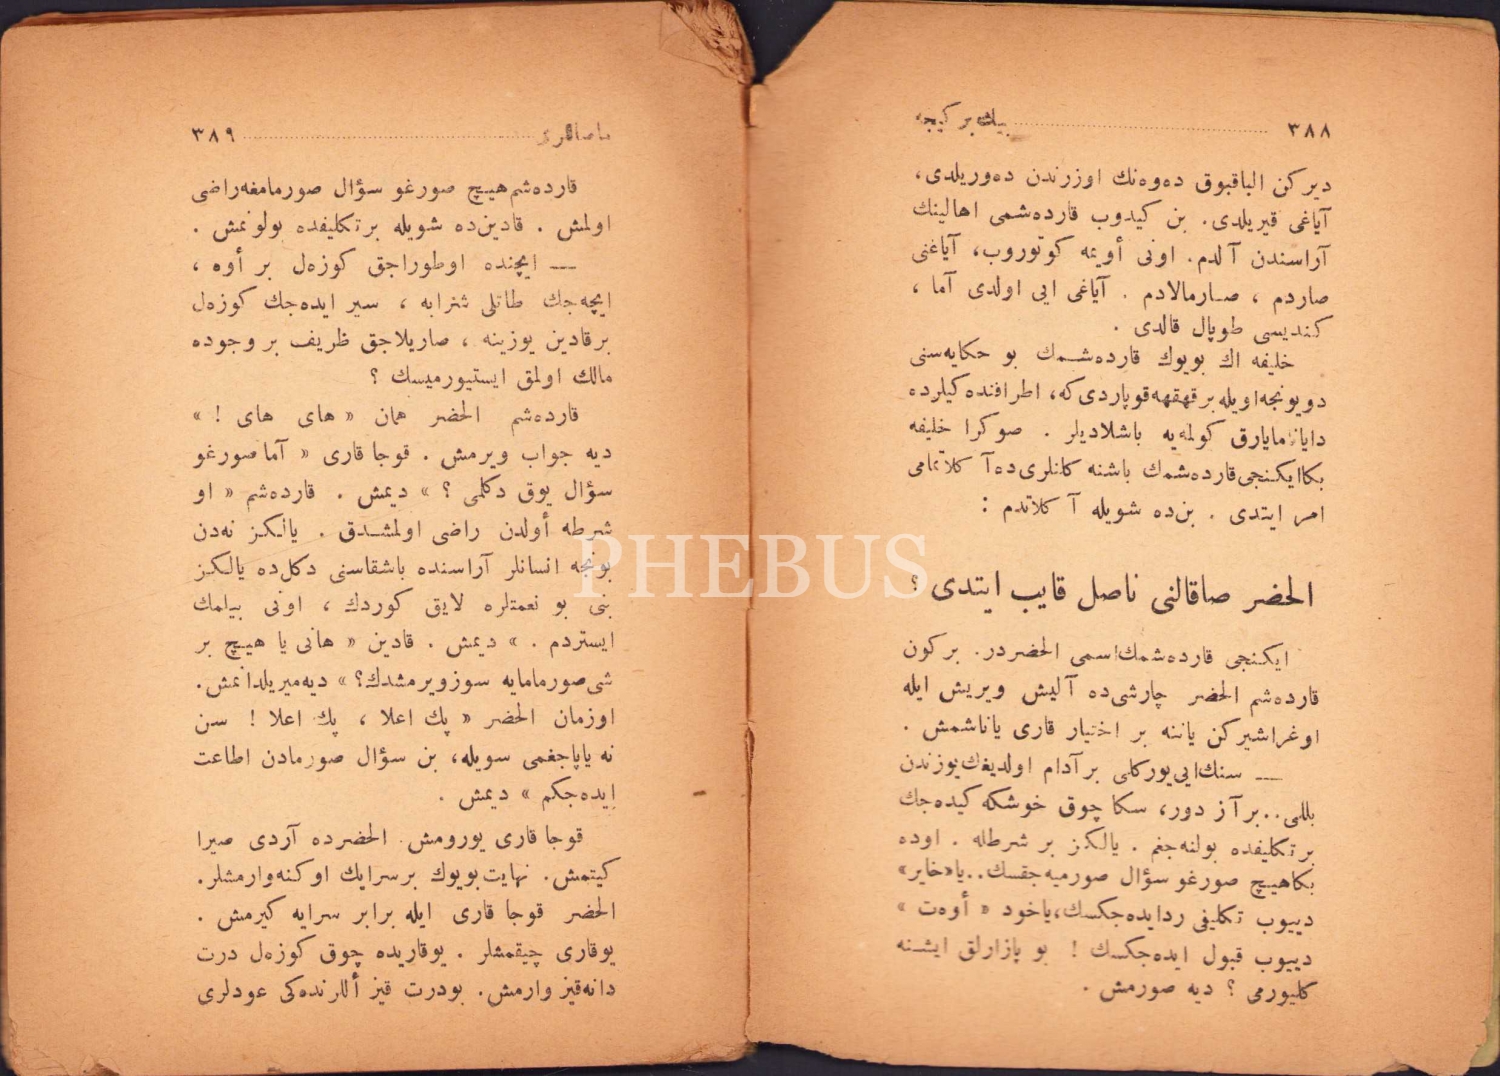 ٣٨٨ بيك بر كيجه
ديركن الباقبوق ده‌وه‌نك اوزرندن ده‌وريلدى،
آياغى قيريلدى. بن كيدوب قارده‌شمى اهالينك
آراسندن آلدم. اونى أويمه كوتوروب، آياغنى
صاردم ، صارمالادم . آياغى ايى اولدى آما ،
كنديسى طوپال قالدى .
خليفه اك بويوك قارده‌شمك بو حكايه‌سنى
دويونجه اويله بر قهقهه قوپاردى كه، اطرافنده كيلرده
دايانامايارق كولمه‌يه باشلاديلر . صوكرا خليفه
بكا ايكنجى قارده‌شمك باشنه كلنلرى ده آكلاتمامى
امر ايتدى . بن ده شويله آكلاتدم :
الحضر صاقالنى ناصل قايب ايتدى ؟
ايكنجى قارده‌شمك اسمى الحضردر. بر كون
قارده‌شم الحضر چارشى ده آليش ويريش ايله
اوغراشيركن ياننه بر اختيار قارى ياناشمش .
— سنك ايى يوركلى بر آدام اولديغك يوزندن
بللى.. بر آز دور، سكا چوق خوشكه كيده‌جك
بر تكليفده بولنه‌جغم . يالكز بر شرطله . اوده
بكا هيچ صورغو سؤال صورميه‌جقسك.. يا «خاير»
دييوب تكليفى رد ايده‌جكسك، ياخود « أوه‌ت »
دييوب قبول ايده‌جكسك ! بو پازارلق ايشنه
كليورمى ؟ ديه صورمش .
ماصاللرى ٣٨٩
قارده‌شم هيچ صورغو سؤال صورمامغه راضى
اولمش . قادين ده شويله بر تكليفده بولونمش .
— ايچنده اوطوراجق كوزه‌ل بر أوه ،
ايچه‌جك طاتلى شرابه ، سير ايده‌جك كوزه‌ل
بر قادين يوزينه ، صاريلاجق ظريف بر وجوده
مالك اولمق ايستيورميسك ؟
قارده‌شم الحضر همان « هاى هاى ! »
ديه جواب ويرمش . قوجا قارى « آما صورغو
سؤال يوق دكلمى ؟ » ديمش . قارده‌شم « او
شرطه أولدن راضى اولمشدق . يالكز نه‌دن
بونجه انسانلر آراسنده باشقاسنى دكل ده يالكز
بنى بو نعمتلره لايق كوردك ، اونى بيلمك
ايستردم . » ديمش . قادين « هانى يا هيچ بر
شى صورمامايه سوز ويرمشدك؟ » ديه ميريلدانمش.
اوزمان الحضر « پك اعلا ، پك اعلا ! سن
نه ياپاجغمى سويله، بن سؤال صورمادن اطاعت
ايده‌جكم » ديمش .
قوجا قارى يورومش . الحضرده آردى صيرا
كيتمش. نهايت بويوك بر سرايك اوكنه وارمشلر.
الحضر قوجا قارى ايله برابر سرايه كيرمش .
يوقارى چيقمشلر . يوقاريده چوق كوزه‌ل درت
دانه قيز وارمش. بو درت قيز أللرنده‌كى عودلرى
PHEBUS